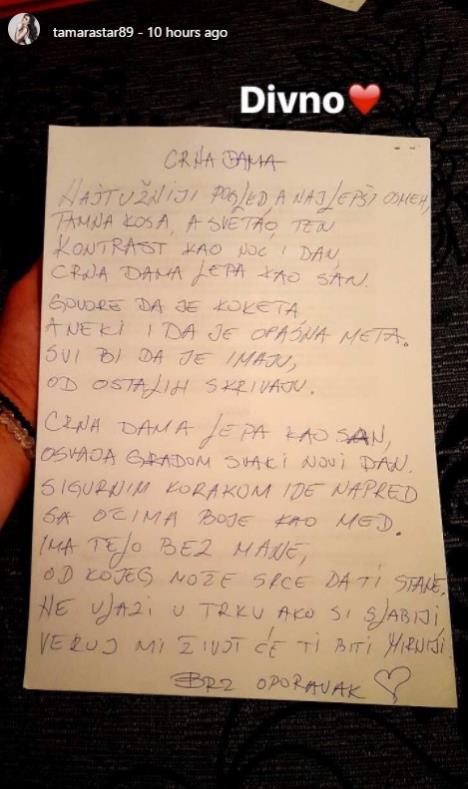 tamarastar89 - 10 hours ago
Divno❤
CRNA DAMA
NAJTUŽNIJI POGLED A NAJLEPŠI OSMEH,
TAMNA KOSA, A SVETAO TEN
KONTRAST KAO NOĆ I DAN,
CRNA DAMA LEPA KAO SAN.
GOVORE DA JE KOKETA
A NEKI I DA JE OPASNA META.
SVI BI DA JE IMAJU,
OD OSTALIH SKRIVAJU.
CRNA DAMA LEPA KAO SAN,
OSVAJA GRADOM SVAKI NOVI DAN.
SIGURNIM KORAKOM IDE NAPRED
SA OČIMA BOJE KAO MED.
IMA TELO BEZ MANE,
OD KOJEG MOŽE SRCE DA TI STANE.
NE ULAZI U TRKU AKO SI SLABIJI
VERUJ MI ŽIVOT ĆE TI BITI MIRNIJI
BRZ OPORAVAK ♡